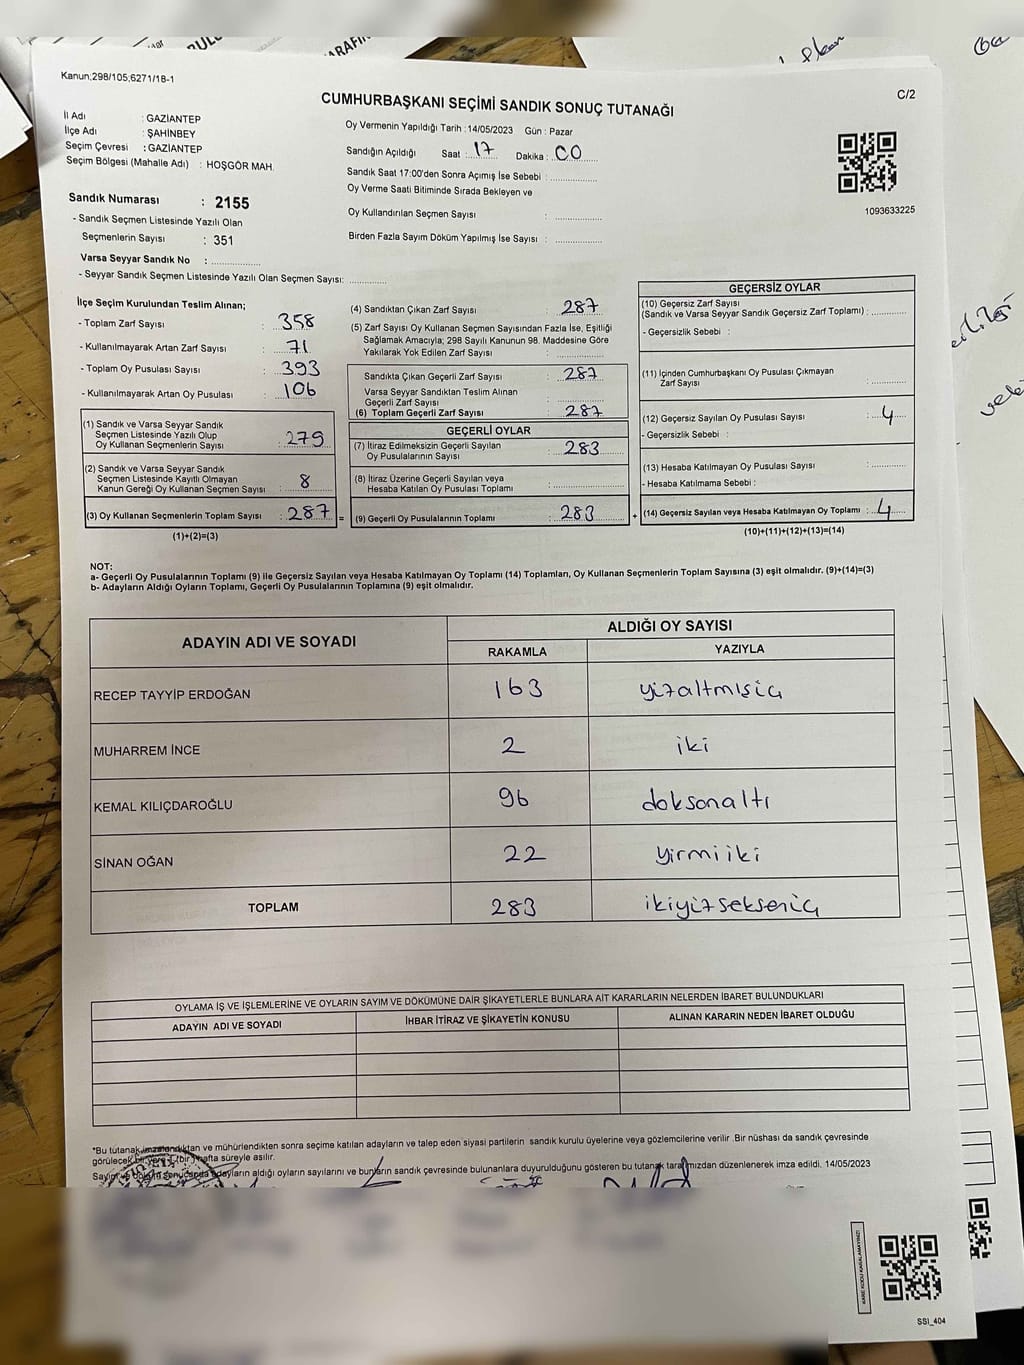 Kanun;298/105;6271/18-1
CUMHURBAŞKANI SEÇİMİ SANDIK SONUÇ TUTANAĞI
C/2
İl Adı : GAZİANTEP
İlçe Adı : ŞAHİNBEY
Seçim Çevresi : GAZİANTEP
Seçim Bölgesi (Mahalle Adı) : HOŞGÖR MAH.
Oy Vermenin Yapıldığı Tarih : 14/05/2023 Gün : Pazar
Sandığın Açıldığı Saat : 17 Dakika : 00
Sandık Saat 17:00'den Sonra Açımış İse Sebebi :
Oy Verme Saati Bitiminde Sırada Bekleyen ve
Oy Kullandırılan Seçmen Sayısı :
Birden Fazla Sayım Döküm Yapılmış İse Sayısı :
1093633225
Sandık Numarası : 2155
- Sandık Seçmen Listesinde Yazılı Olan
Seçmenlerin Sayısı : 351
Varsa Seyyar Sandık No :
- Seyyar Sandık Seçmen Listesinde Yazılı Olan Seçmen Sayısı:
İlçe Seçim Kurulundan Teslim Alınan;
- Toplam Zarf Sayısı : 358
- Kullanılmayarak Artan Zarf Sayısı : 71
- Toplam Oy Pusulası Sayısı : 393
- Kullanılmayarak Artan Oy Pusulası : 106
(1) Sandık ve Varsa Seyyar Sandık
Seçmen Listesinde Yazılı Olup
Oy Kullanan Seçmenlerin Sayısı : 279
(2) Sandık ve Varsa Seyyar Sandık
Seçmen Listesinde Kayıtlı Olmayan
Kanun Gereği Oy Kullanan Seçmen Sayısı : 8
(3) Oy Kullanan Seçmenlerin Toplam Sayısı : 287 =
(1)+(2)=(3)
(4) Sandıktan Çıkan Zarf Sayısı : 287
(5) Zarf Sayısı Oy Kullanan Seçmen Sayısından Fazla İse, Eşitliği
Sağlamak Amacıyla; 298 Sayılı Kanunun 98. Maddesine Göre
Yakılarak Yok Edilen Zarf Sayısı :
Sandıkta Çıkan Geçerli Zarf Sayısı : 287
Varsa Seyyar Sandıktan Teslim Alınan
Geçerli Zarf Sayısı :
(6) Toplam Geçerli Zarf Sayısı : 287
GEÇERLİ OYLAR
(7) İtiraz Edilmeksizin Geçerli Sayılan
Oy Pusulalarının Sayısı : 283
(8) İtiraz Üzerine Geçerli Sayılan veya
Hesaba Katılan Oy Pusulası Toplamı :
(9) Geçerli Oy Pusulalarının Toplamı : 283 +
GEÇERSİZ OYLAR
(10) Geçersiz Zarf Sayısı
(Sandık ve Varsa Seyyar Sandık Geçersiz Zarf Toplamı) :
- Geçersizlik Sebebi :
(11) İçinden Cumhurbaşkanı Oy Pusulası Çıkmayan
Zarf Sayısı :
(12) Geçersiz Sayılan Oy Pusulası Sayısı : 4
- Geçersizlik Sebebi :
(13) Hesaba Katılmayan Oy Pusulası Sayısı :
- Hesaba Katılmama Sebebi :
(14) Geçersiz Sayılan veya Hesaba Katılmayan Oy Toplamı : 4
(10)+(11)+(12)+(13)=(14)
NOT:
a- Geçerli Oy Pusulalarının Toplamı (9) ile Geçersiz Sayılan veya Hesaba Katılmayan Oy Toplamı (14) Toplamları, Oy Kullanan Seçmenlerin Toplam Sayısına (3) eşit olmalıdır. (9)+(14)=(3)
b- Adayların Aldığı Oyların Toplamı, Geçerli Oy Pusulalarının Toplamına (9) eşit olmalıdır.
ADAYIN ADI VE SOYADI
ALDIĞI OY SAYISI
RAKAMLA YAZIYLA
RECEP TAYYİP ERDOĞAN 163 yüzaltmışüç
MUHARREM İNCE 2 iki
KEMAL KILIÇDAROĞLU 96 doksanaltı
SİNAN OĞAN 22 yirmiiki
TOPLAM 283 ikiyüzseksenüç
OYLAMA İŞ VE İŞLEMLERİNE VE OYLARIN SAYIM VE DÖKÜMÜNE DAİR ŞİKAYETLERLE BUNLARA AİT KARARLARIN NELERDEN İBARET BULUNDUKLARI
ADAYIN ADI VE SOYADI İHBAR İTİRAZ VE ŞİKAYETİN KONUSU ALINAN KARARIN NEDEN İBARET OLDUĞU
*Bu tutanak imzalandıktan ve mühürlendikten sonra seçime katılan adayların ve talep eden siyasi partilerin sandık kurulu üyelerine veya gözlemcilerine verilir .Bir nüshası da sandık çevresinde
görülecek bir yere 1 (bir) hafta süreyle asılır.
Sayım ve döküm sonucunda adayların aldığı oyların sayılarını ve bunların sandık çevresinde bulunanlara duyurulduğunu gösteren bu tutanak tarafımızdan düzenlenerek imza edildi. 14/05/2023
SSI_404